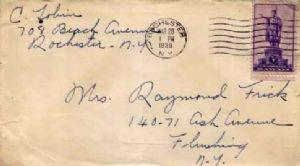 C. Tobin
709 Beach Avenue
Rochester - N.Y.
ROCHESTER
1 PM
1938
N.Y.
Mrs. Raymond Frick
140-71 Ash Avenue
Flushing
N.Y.